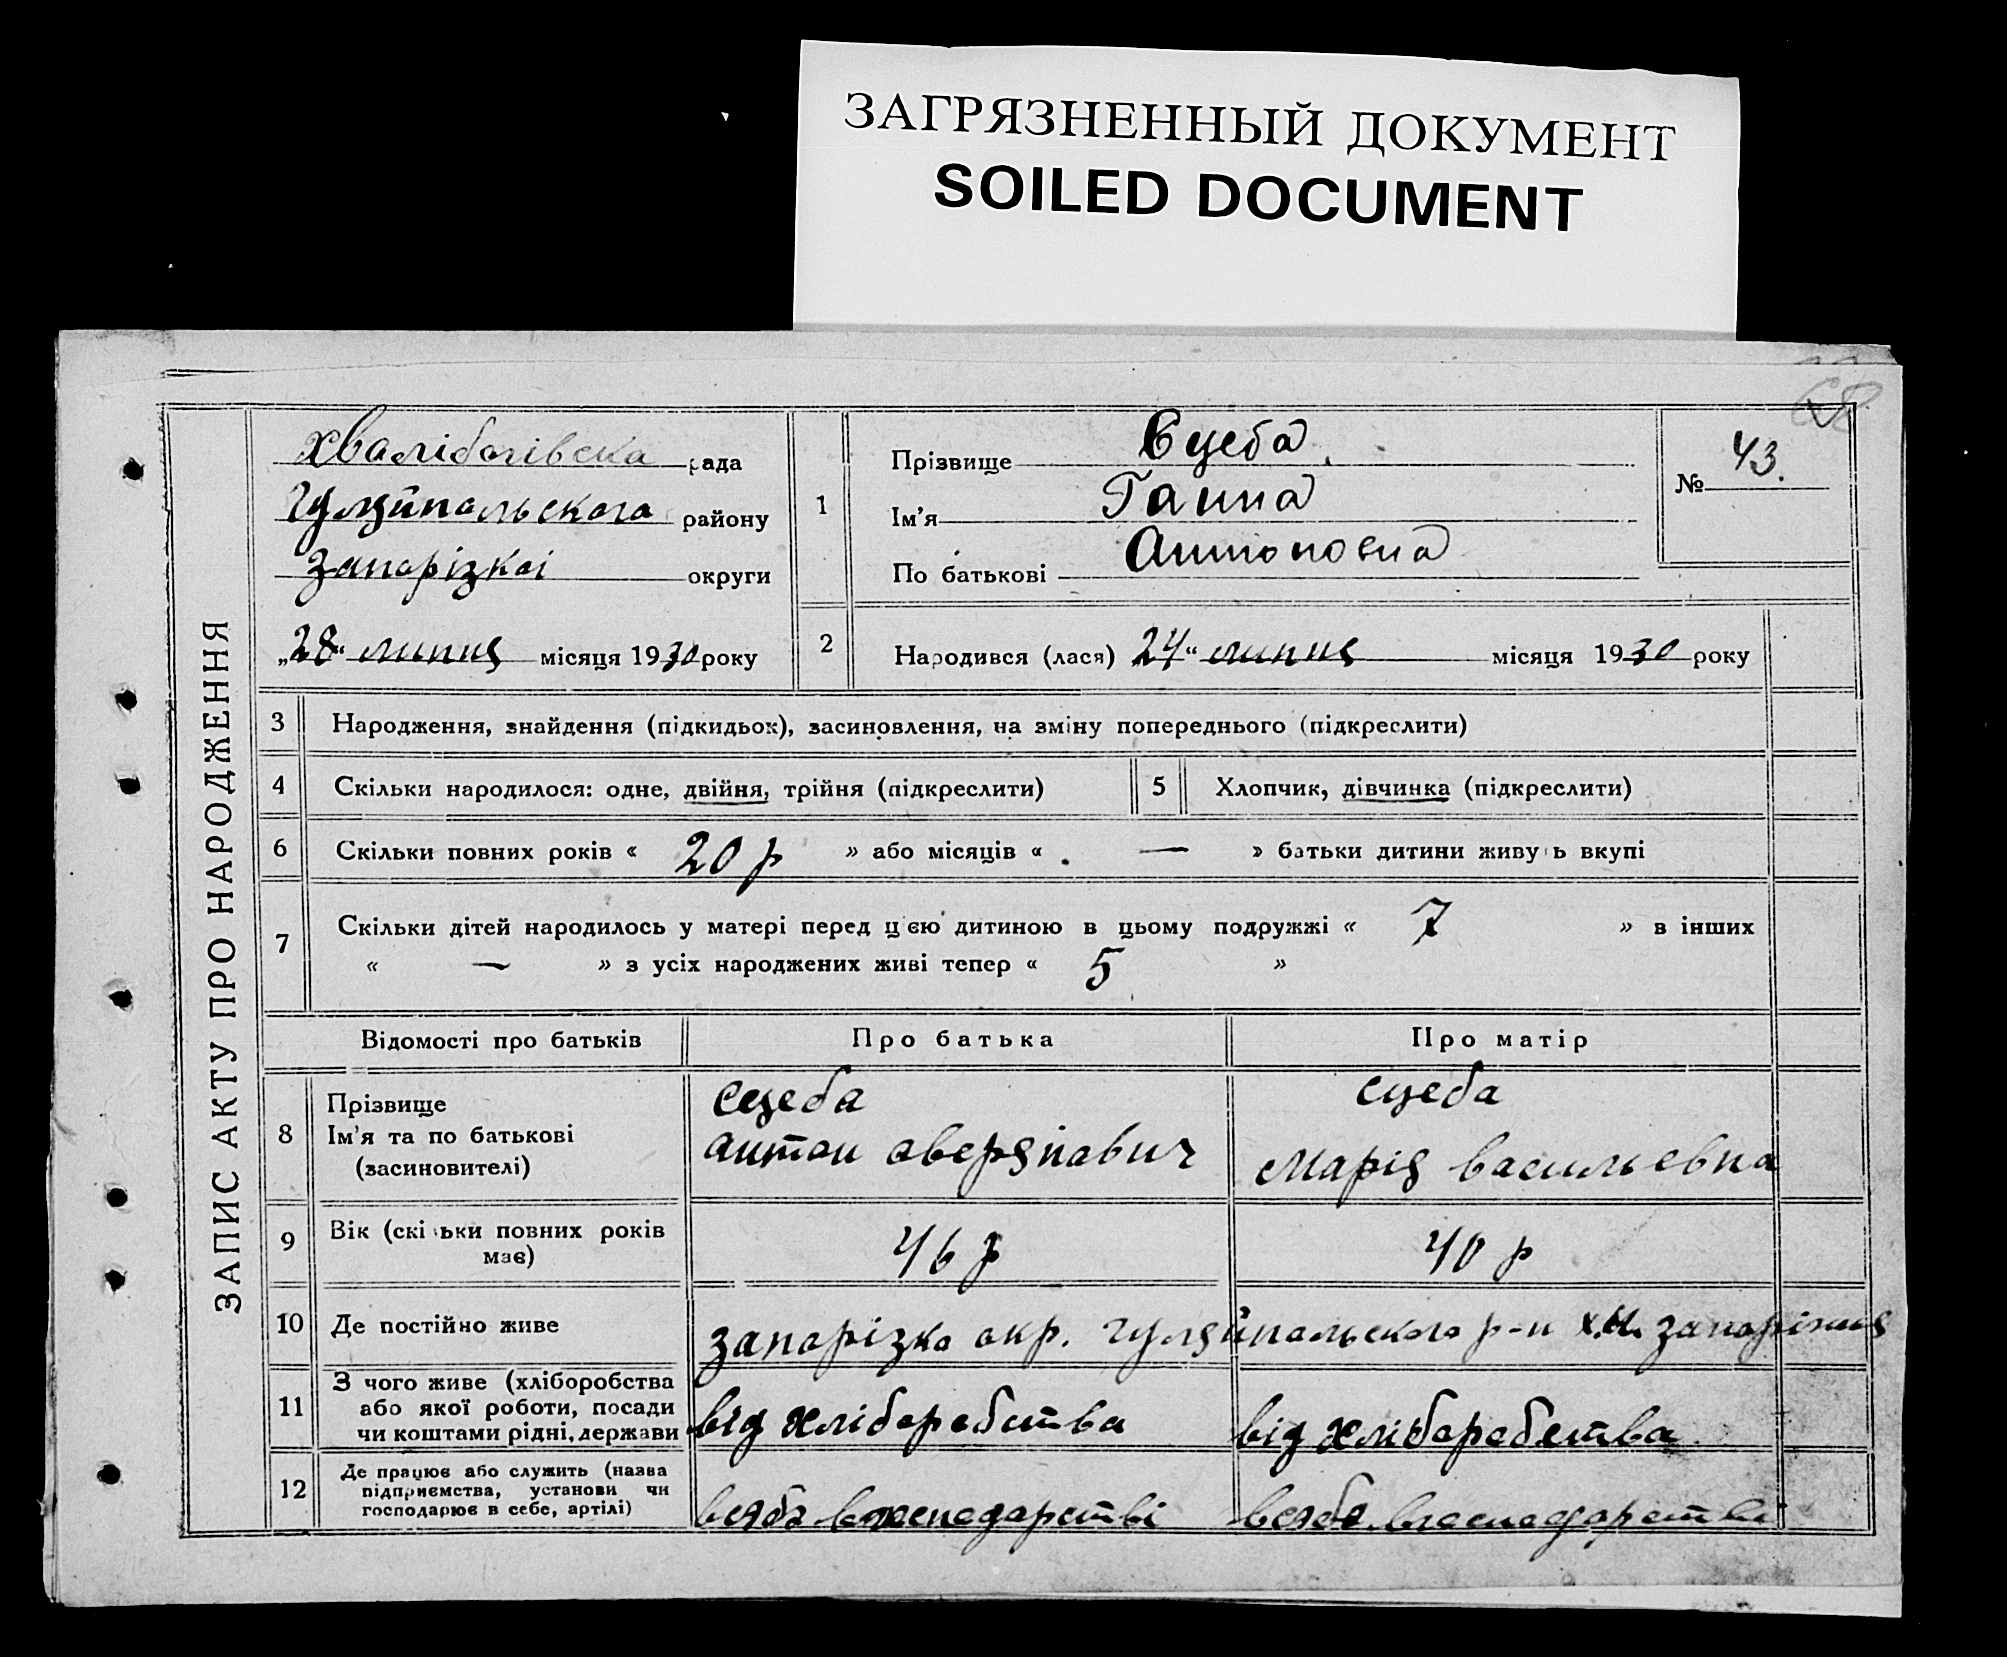 ЗАГРЯЗНЕННЫЙ ДОКУМЕНТ
SOILED DOCUMENT
68
ЗАПИС АКТУ ПРО НАРОДЖЕННЯ
рада
Гуляйпольского району
Запорізкоі округи
„28“ липня місяця 1930 року
1
Прізвище Єцеба
Ім'я Ганна
По батькові Антоновна
№ 43.
2 Народився (лася) 24“ липня місяця 1930 року
3 Народження, знайдення (підкидьок), засиновлення, на зміну попереднього (підкреслити)
4 Скільки народилося: одне, двійня, трійня (підкреслити) 5 Хлопчик, дівчинка (підкреслити)
6 Скільки повних років « 20 р » або місяців « — » батьки дитини живуть вкупі
7 Скільки дітей народилось у матері перед цією дитиною в цьому подружжі « 7 » в інших
« — » з усіх народжених живі тепер « 5 »
Відомості про батьків Про батька Про матір
8 Прізвище Єцеба Єцеба
Ім'я та по батькові Антон Аверянович Марія Васильевна
(засиновителі)
9 Вік (скільки повних років має) 46 р 40 р
10 Де постійно живе Запорізка окр. Гуляйпольского р-н х.Н. Запоріжня
11 З чого живе (хліборобства або якої роботи, посади чи коштами рідні, держави від хліборобства від хліборобства
12 Де працює або служить (назва підприємства, установи чи господарює в себе, артілі) всябе вгосподарстві всебе вгосподарстві